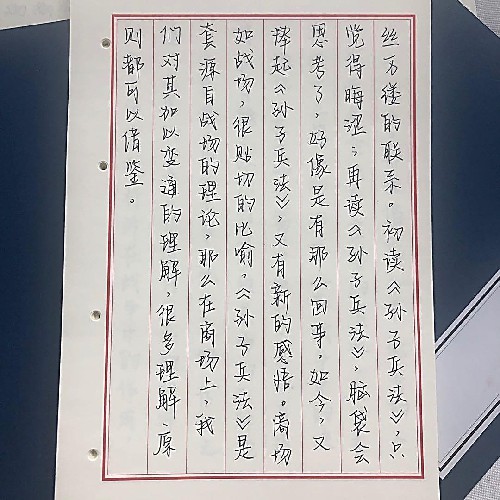 丝万缕的联系。初读《孙子兵法》，只
觉得晦涩；再读《孙子兵法》，脑袋会
思考了，好像是有那么回事，如今，又
捧起《孙子兵法》，又有新的感悟。商场
如战场，很贴切的比喻，《孙子兵法》是
套源自战场的理论，那么在商场上，我
们对其加以变通的理解，很多理解、原
则都可以借鉴。